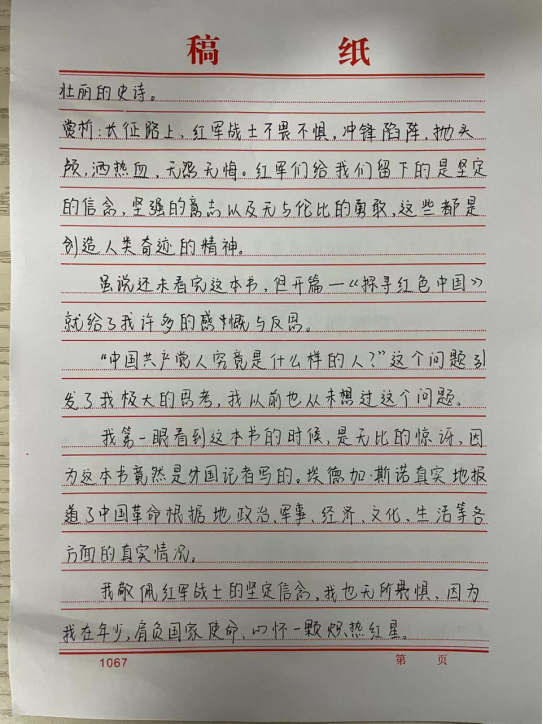 稿 纸
壮丽的史诗。
赏析:长征路上,红军战士不畏不惧,冲锋陷阵,抛头
颅,洒热血,无怨无悔。红军们给我们留下的是坚定
的信念,坚强的意志以及无与伦比的勇敢,这些都是
创造人类奇迹的精神。
虽说还未看完这本书,但开篇一《探寻红色中国》
就给了我许多的感慨与反思。
“中国共产党人究竟是什么样的人?”这个问题引
发了我极大的思考,我从前也从未想过这个问题。
我第一眼看到这本书的时候,是无比的惊讶,因
为这本书竟然是外国记者写的。埃德加·斯诺真实地报
道了中国革命根据地政治、军事、经济、文化、生活等各
方面的真实情况。
我敬佩红军战士的坚定信念,我也无所畏惧,因为
我在年少,肩负国家使命,心怀一颗炽热红星。
1067 第 页